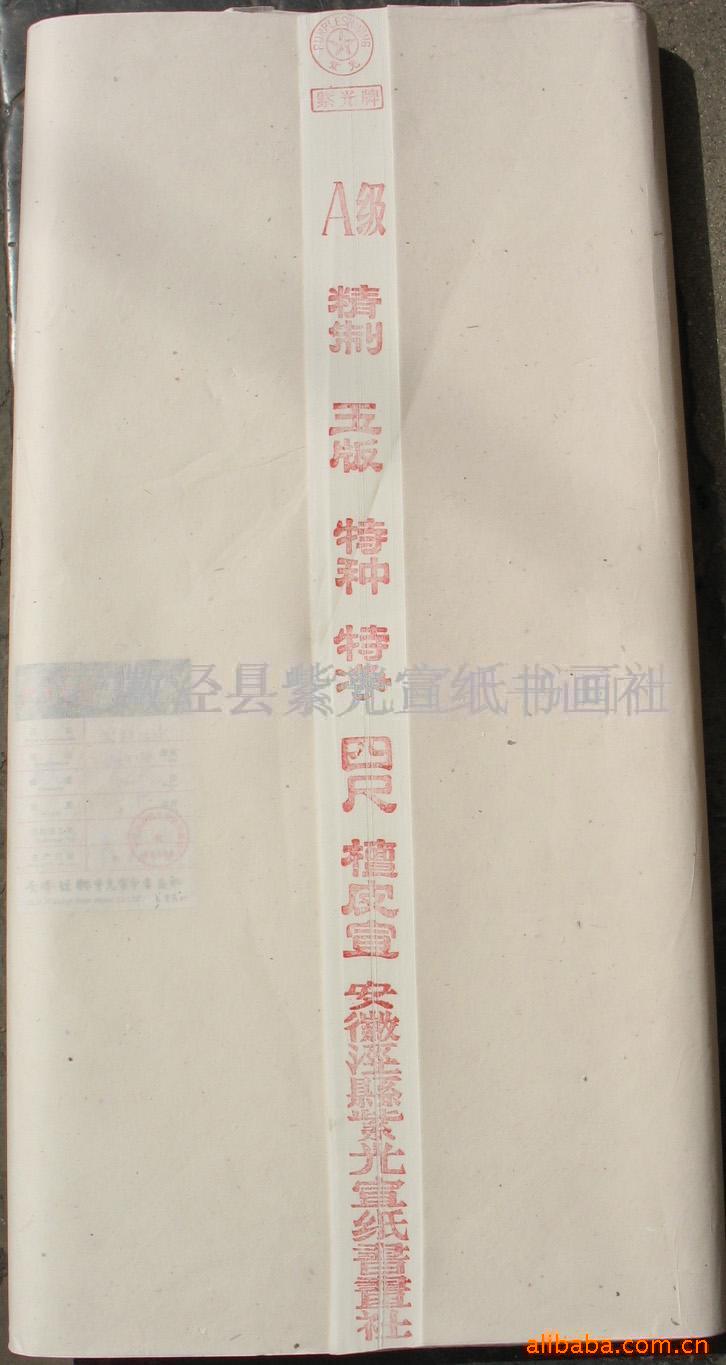 紫光
紫光牌
A级
精制
玉版
特种
特净
四尺
檀皮宣
安徽泾縣紫光宣纸書畫社
徽泾县紫光宣纸书画社
alibaba.com.cn